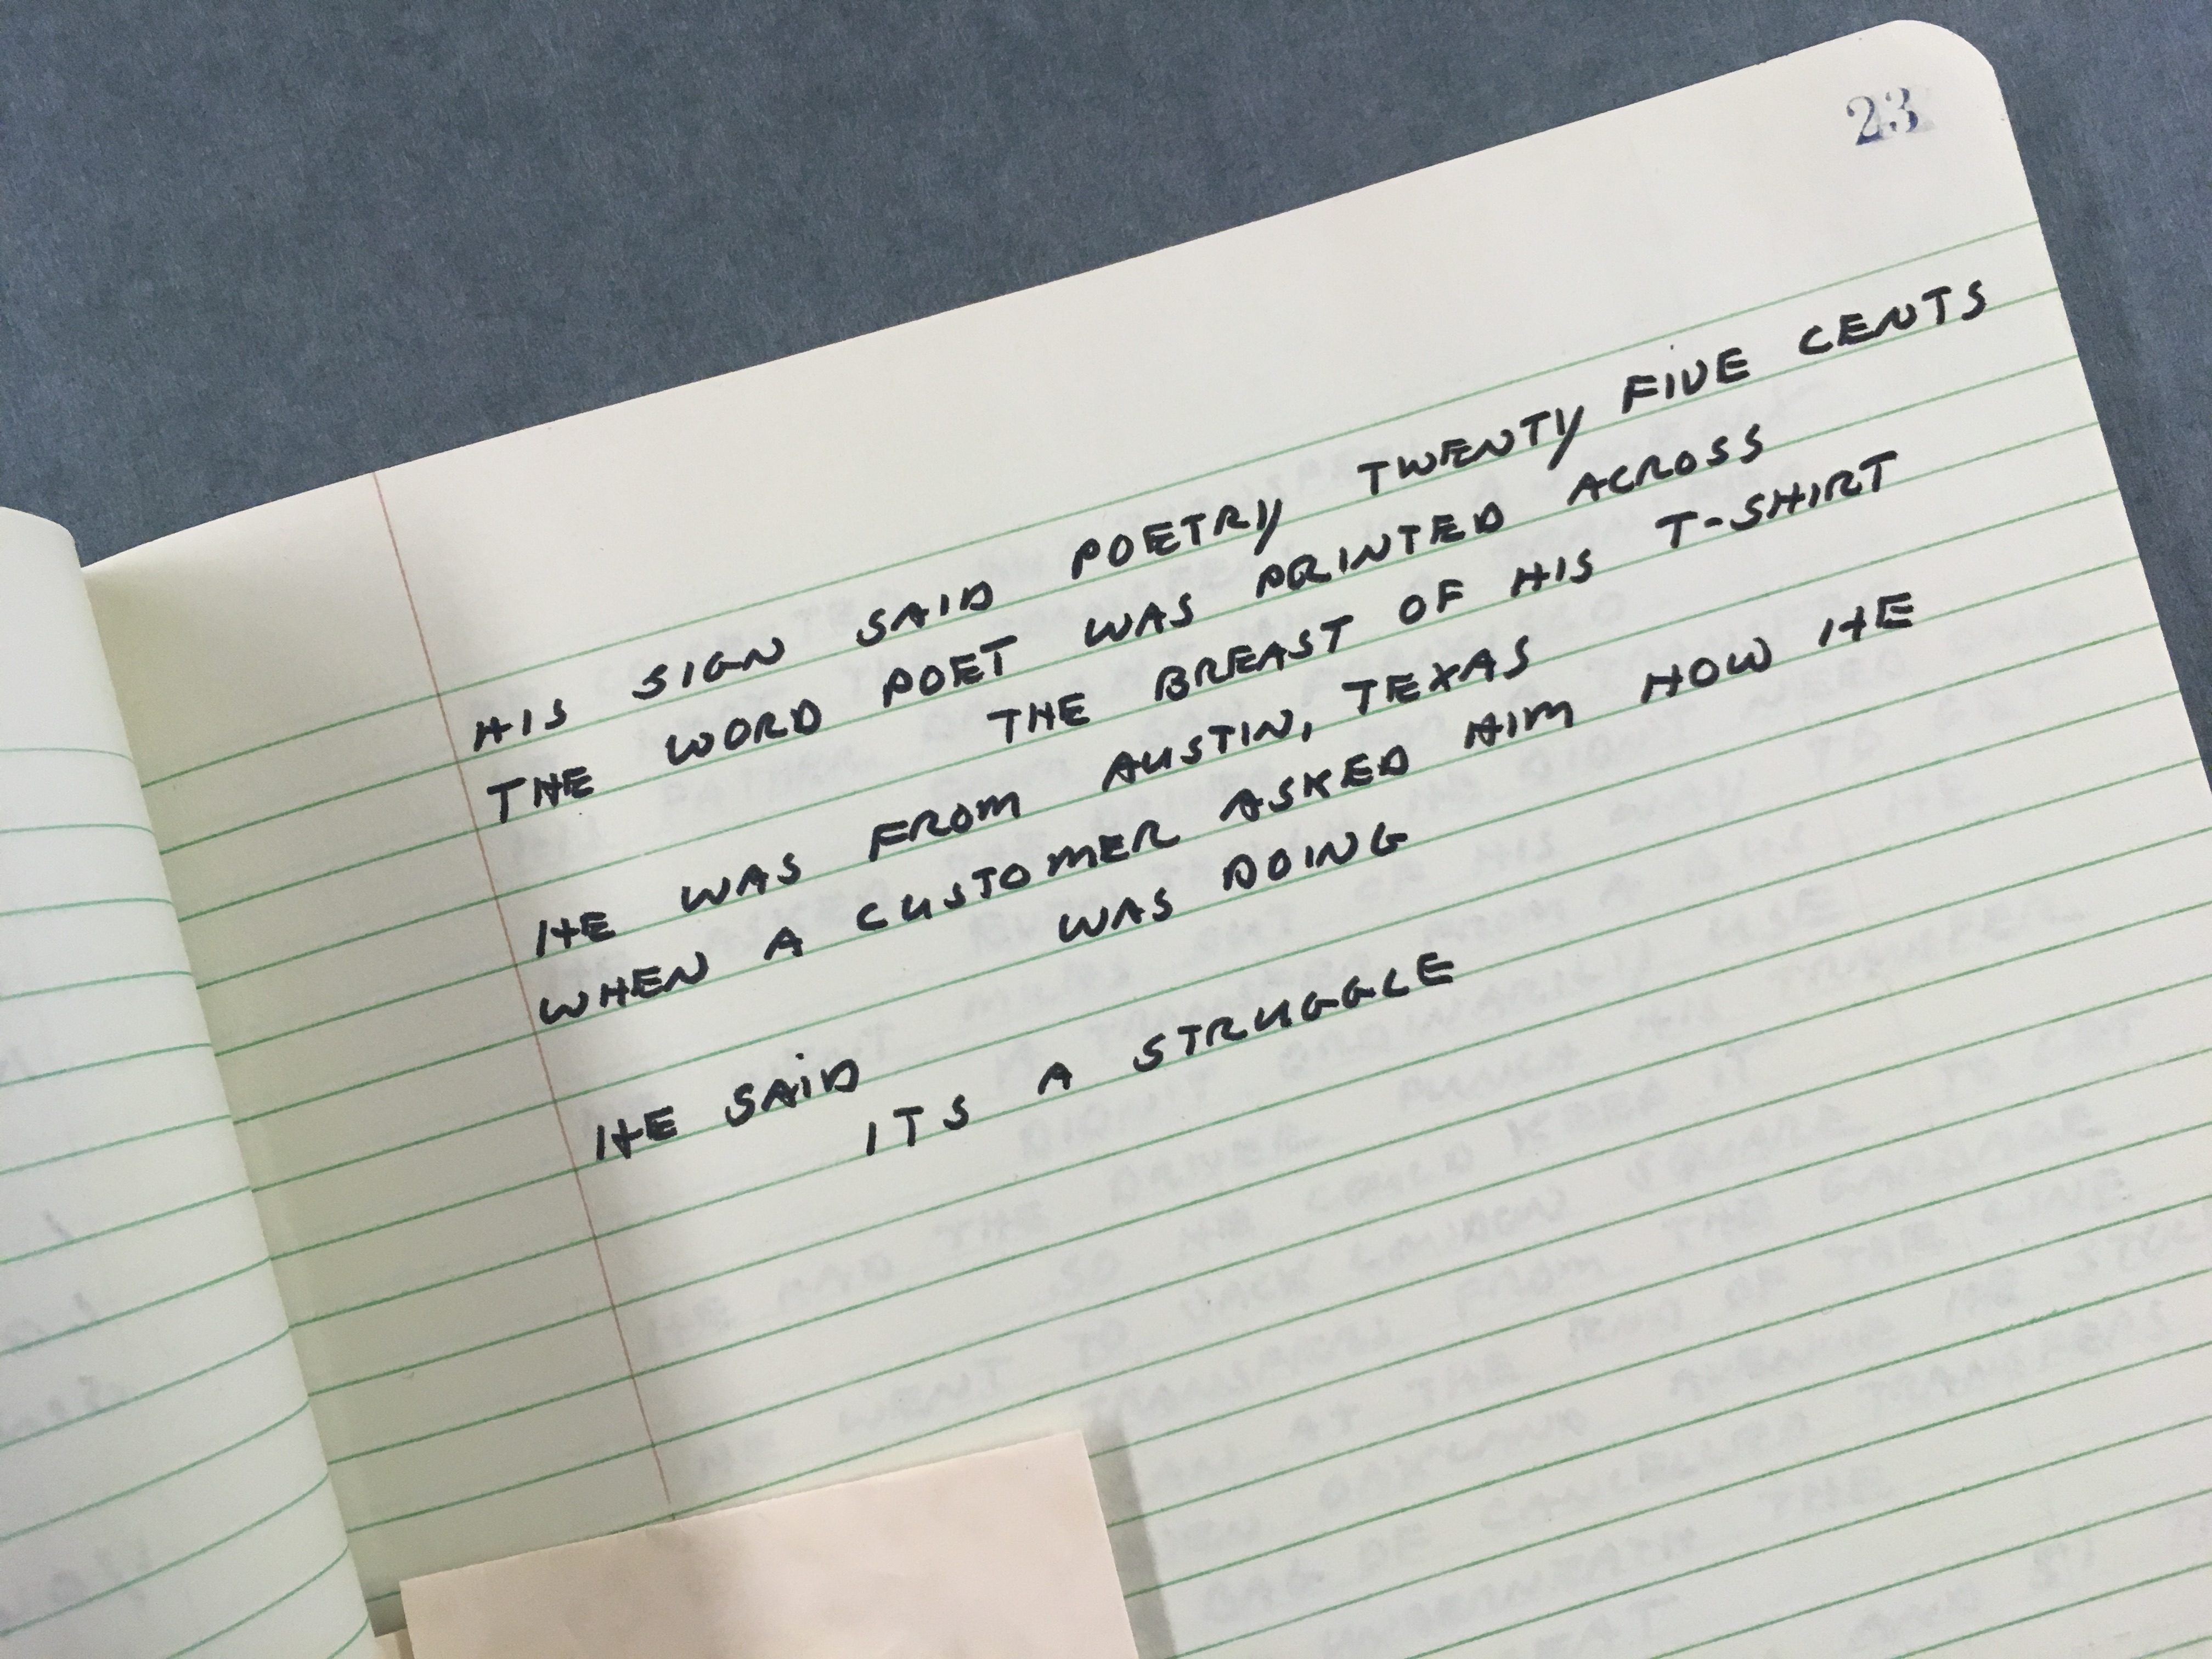 23
HIS SIGN SAID POETRY TWENTY FIVE CENTS
THE WORD POET WAS PRINTED ACROSS
THE BREAST OF HIS T-SHIRT
HE WAS FROM AUSTIN, TEXAS
WHEN A CUSTOMER ASKED HIM HOW HE
WAS DOING
HE SAID
ITS A STRUGGLE